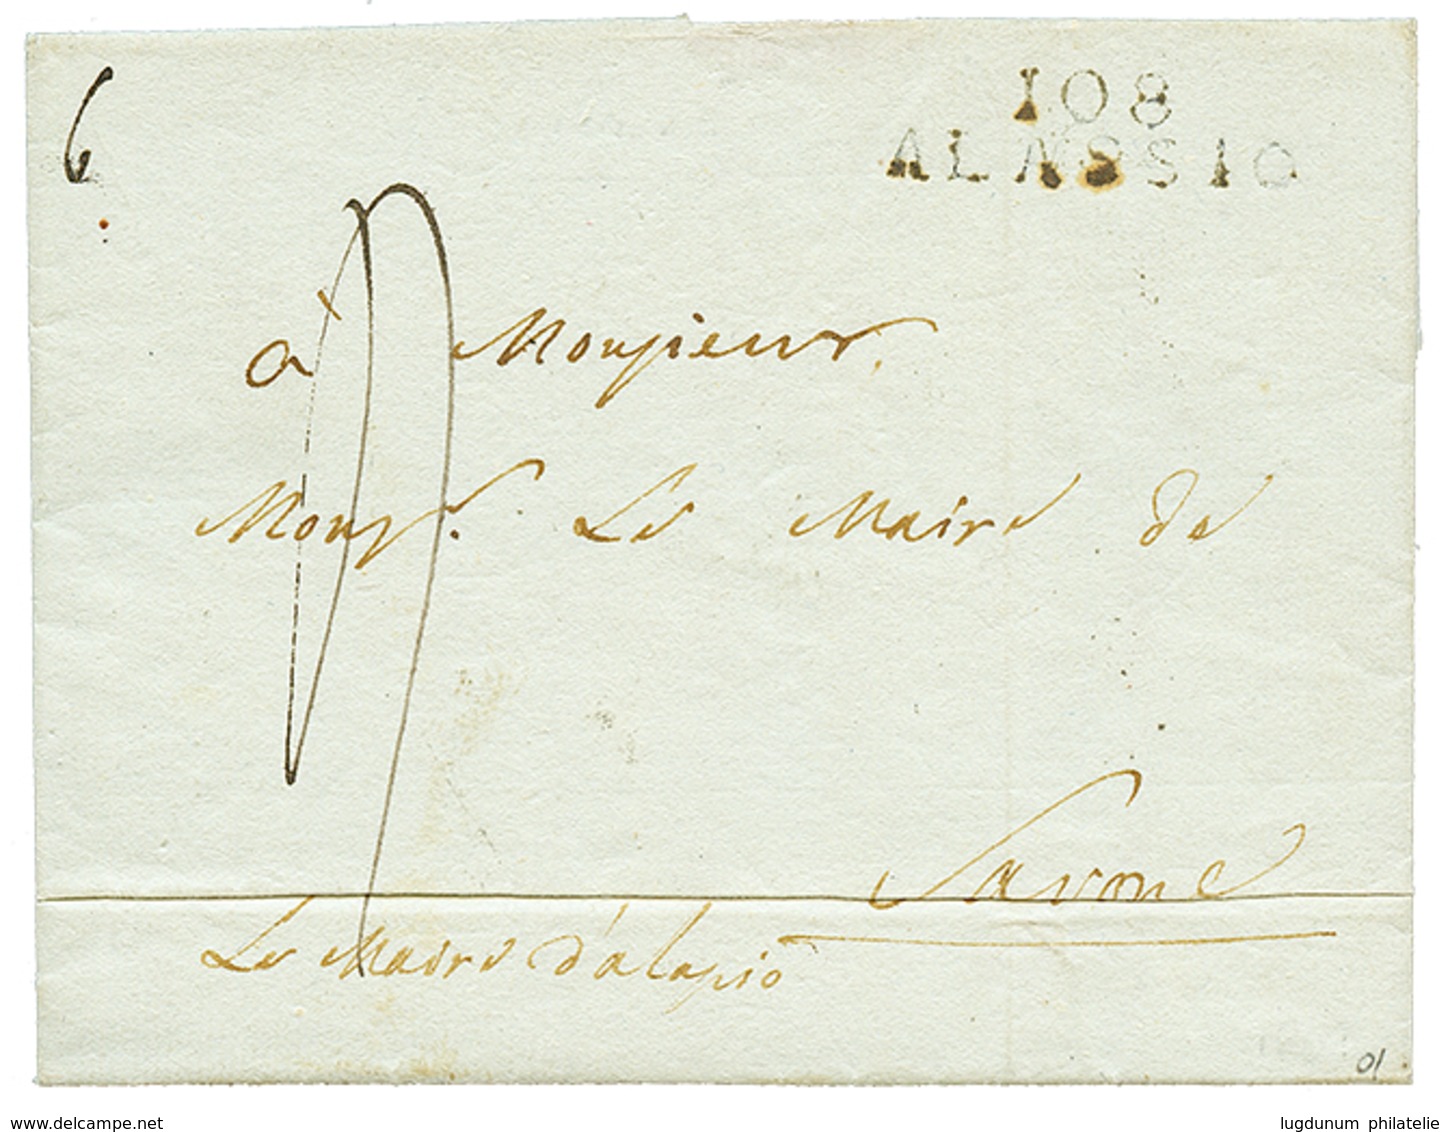 6
108
ALASSIO
à Monsieur
Monsr. Le Maire de
Savone
Le Maire d'alassio
01
www.delcampe.net
lugdunum philatelie